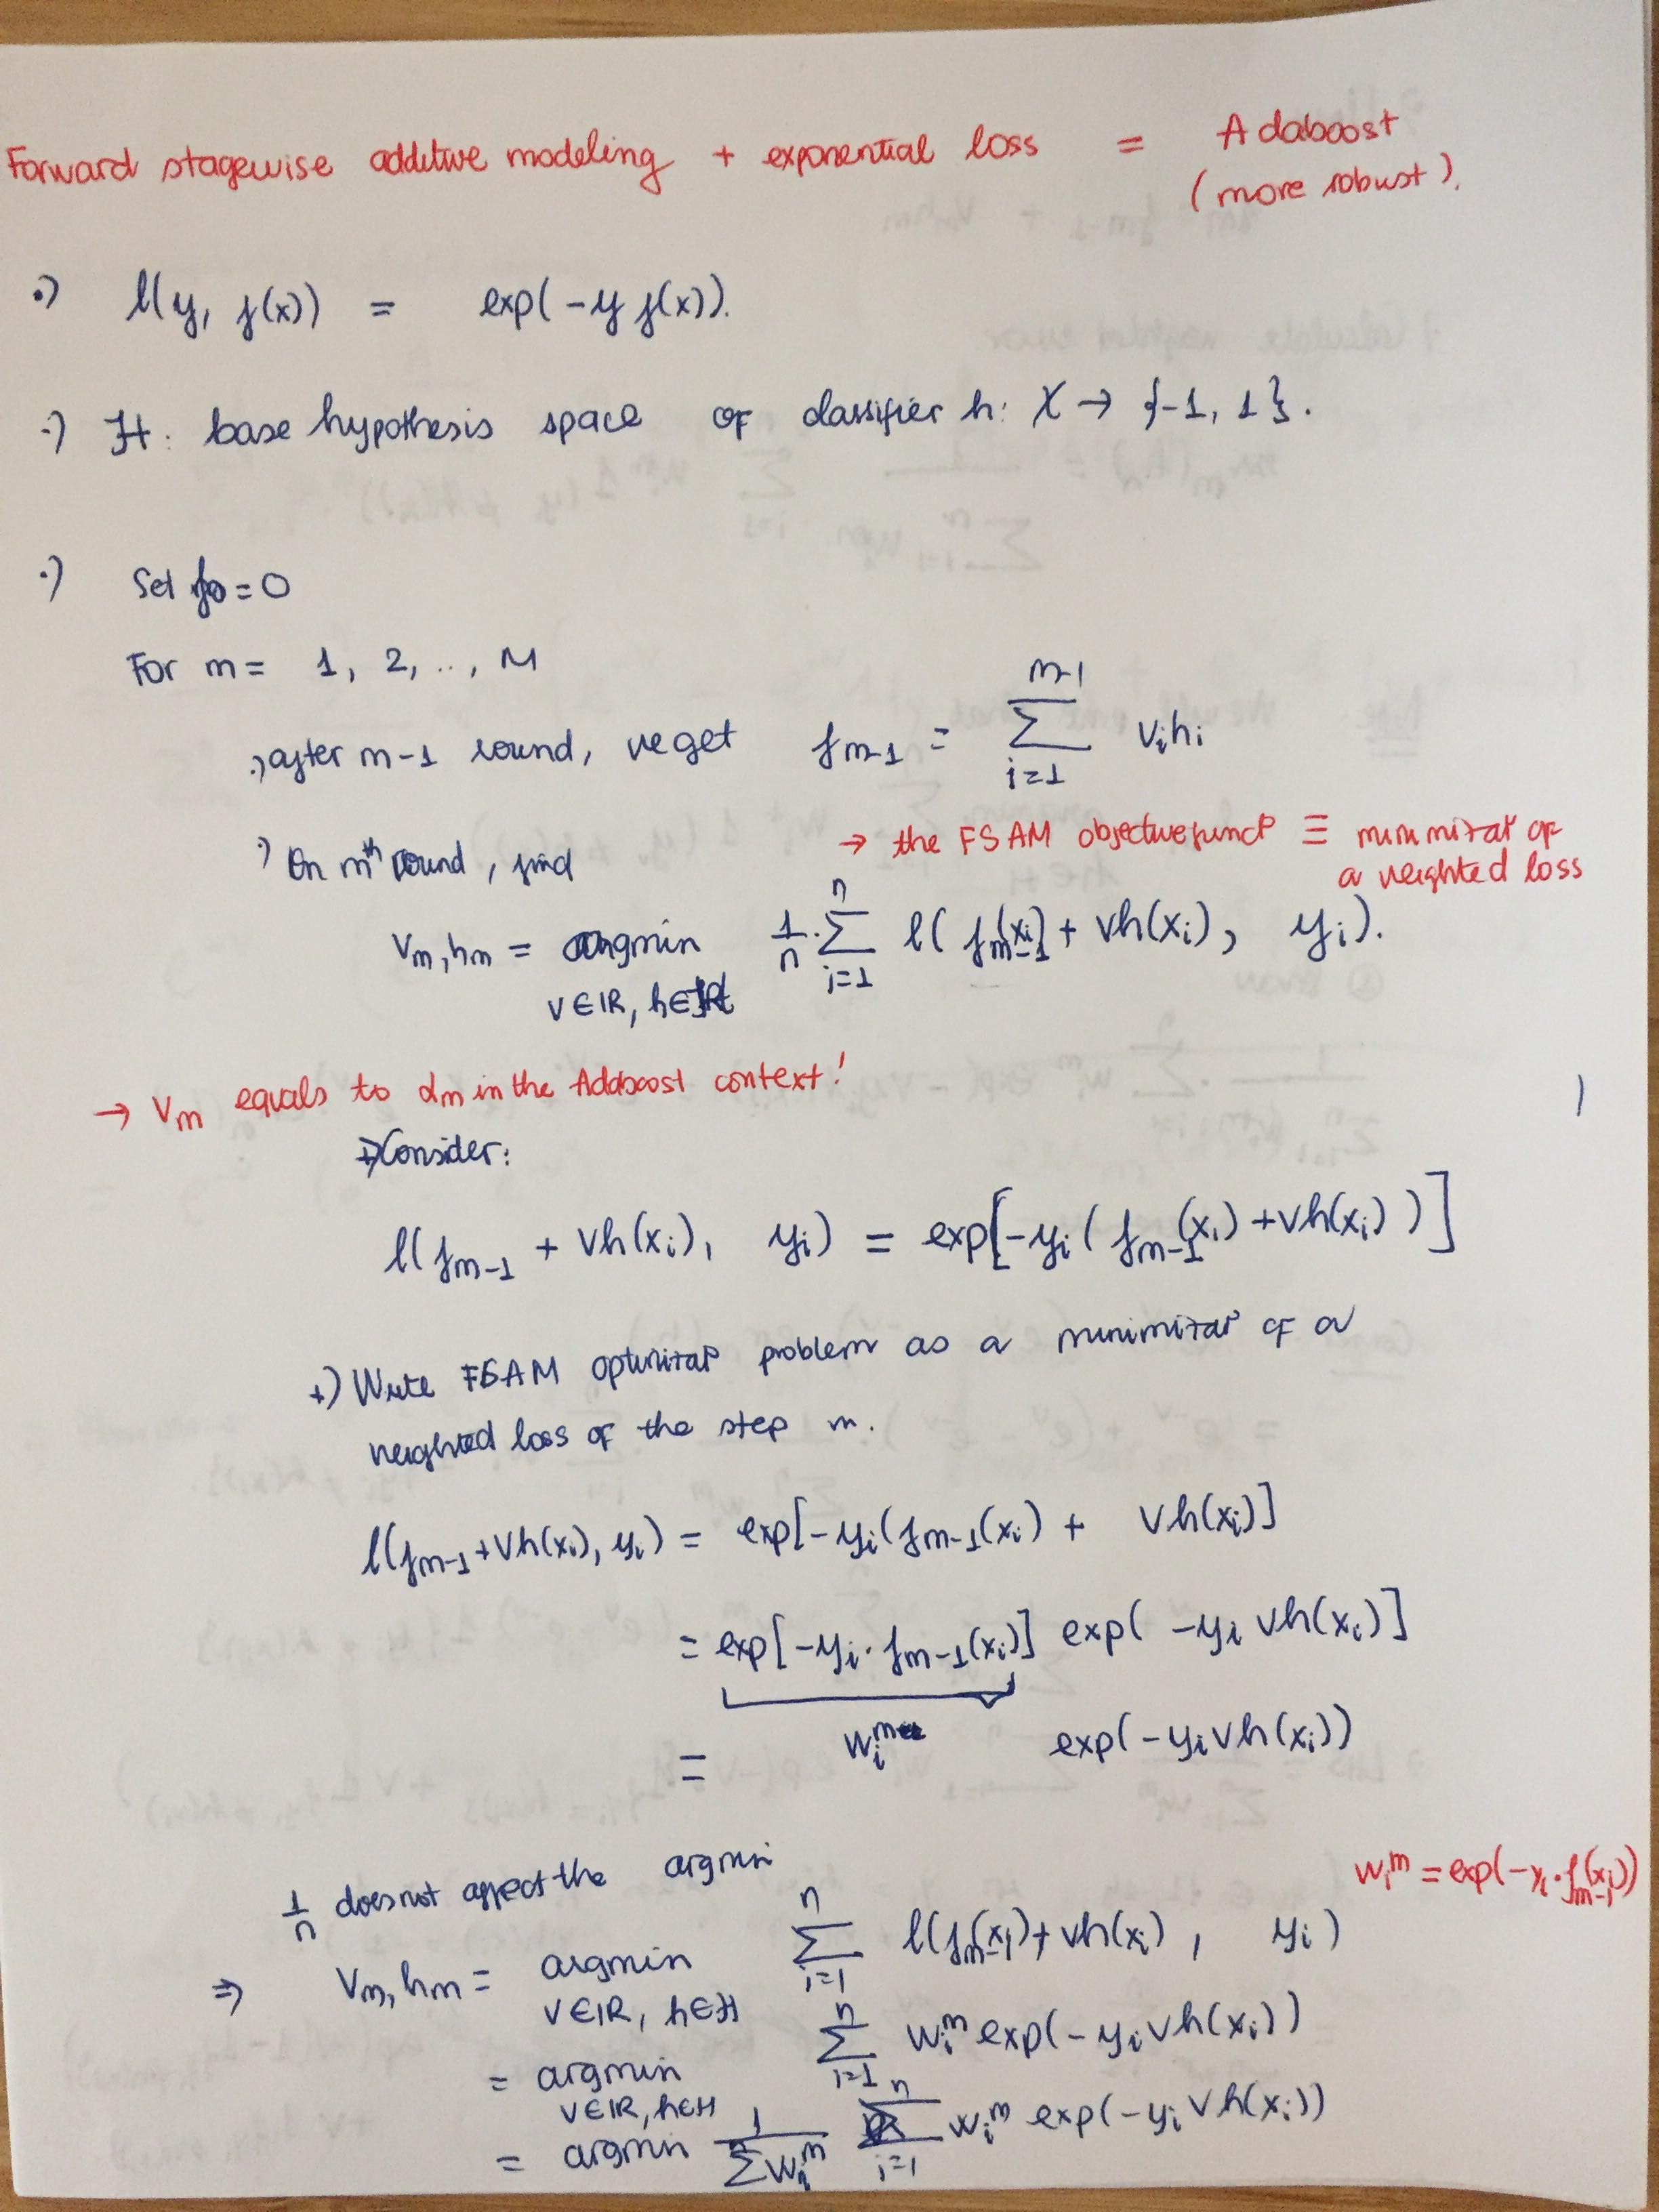 Forward stagewise additive modeling + exponential loss = Adaboost
(more robust).
·) l(y, f(x)) = exp(-y f(x)).
·) H: base hypothesis space of classifier h: X → {-1, 1}.
·) Set f0 = 0
For m = 1, 2, .., M
·) after m-1 round, we get f_{m-1} = ∑_{i=1}^{m-1} v_i h_i
→ the FSAM objective funct° ≡ minimizat° of
a weighted loss
·) On m^{th} round, find
v_m, h_m = argmin_{v∈ℝ, h∈H} 1/n · ∑_{i=1}^{n} l( f_{m-1}(x_i) + vh(x_i), y_i).
→ v_m equals to α_m in the Adaboost context!
+) Consider:
l(f_{m-1} + vh(x_i), y_i) = exp[-y_i ( f_{m-1}(x_i) + vh(x_i) )]
+) Write FSAM optimizat° problem as a minimizat° of a
weighted loss of the step m.
l(f_{m-1} + vh(x_i), y_i) = exp[-y_i(f_{m-1}(x_i) + vh(x_i)]
= exp[-y_i · f_{m-1}(x_i)] exp( -y_i vh(x_i)]
= w_i^m exp(-y_i vh(x_i))
1/n does not affect the argmin
w_i^m = exp(-y_i · f_{m-1}(x_i))
⇒ v_m, h_m = argmin_{v∈ℝ, h∈H} ∑_{i=1}^{n} l(f_{m-1}(x_i) + vh(x_i), y_i)
= argmin_{v∈ℝ, h∈H} ∑_{i=1}^{n} w_i^m exp(-y_i vh(x_i))
= argmin 1/∑w_i^m ∑_{i=1}^{n} w_i^m exp(-y_i vh(x_i))